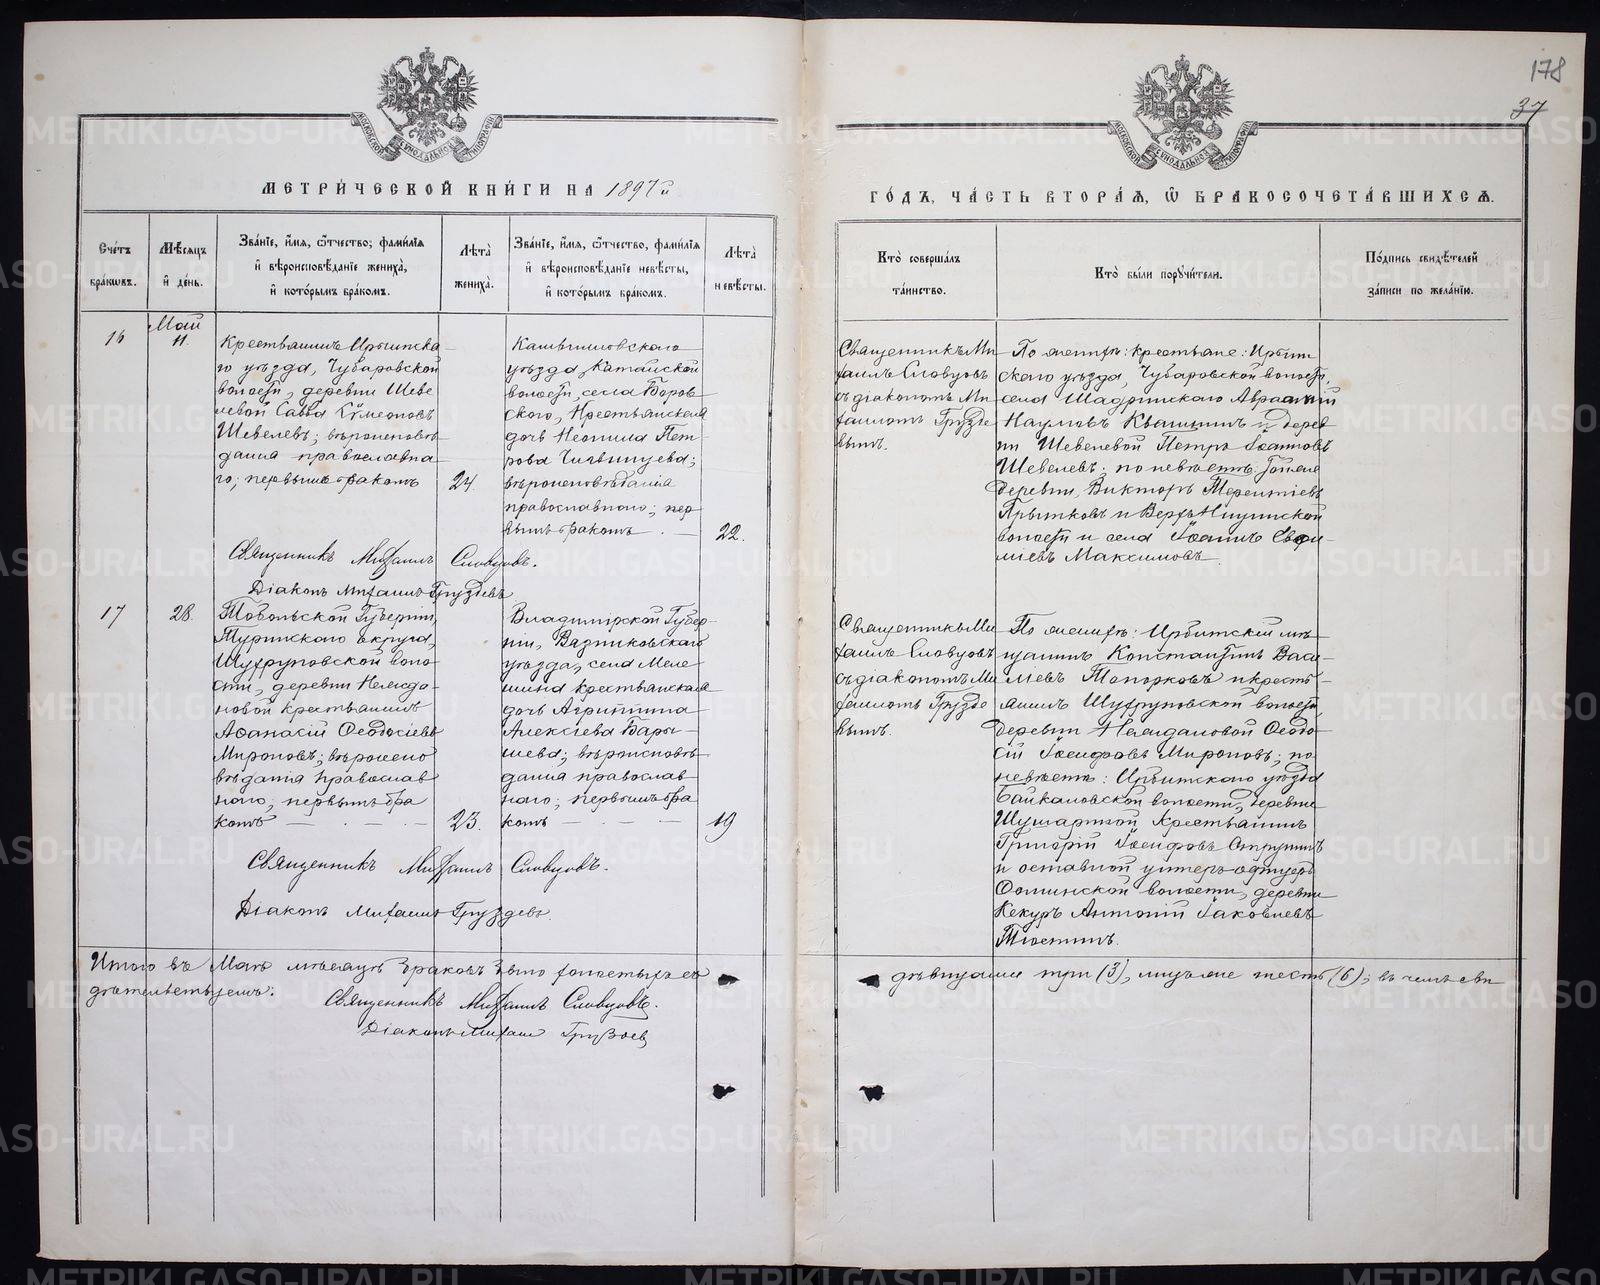 178
37
МЕТРИЧЕСКОЙ КНИГИ НА 1897й
ГОДЪ, ЧАСТЬ ВТОРАЯ, Ѡ БРАКОСОЧЕТАВШИХСЯ.
Счетъ браковъ.
Мѣсяцъ и день.
Званіе, имя, отчество, фамилія
и вѣроисповѣданіе жениха,
и которымъ бракомъ.
Лѣта
жениха.
Званіе, имя, отчество, фамилія
и вѣроисповѣданіе невѣсты,
и которымъ бракомъ.
Лѣта
невѣсты.
Кто совершалъ
таинство.
Кто были поручители.
Подпись свидѣтелей
записи по желанію.
16
Май
11.
Крестьянинъ Ирбитска-
го уѣзда, Чубаровской
волости, деревни Шеве
левой Савва Сумеоновъ
Шевелевъ; вѣроисповѣ
данія православна
го; первымъ бракомъ
24.
Камышловскаго
уѣзда, Катайской
волости, села Боров
скаго, Крестьянская
дочь Неонила Пет-
рова Чигвинцева;
вѣроисповѣданія
православнаго; пер
вымъ бракомъ. —
22.
Священникъ Ми
хаилъ Словцовъ
съ діакономъ Ми
хаиломъ Груздe
вымъ.
По женихѣ: крестьяне: Ирбит
скаго уѣзда, Чубаровской волости,
села Шадринскаго Авраамій
Наумовъ Квашнинъ и дерев
ни Шевелевой Петръ Іоанновъ
Шевелевъ; по невѣстѣ: Тойже
деревни, Викторъ Терентіевъ
Прытковъ и Верхъ-Ницинской
волости и села Іоаннъ Евфи-
міевъ Максимовъ.
Священникъ Михаилъ Словцовъ.
Діаконъ Михаилъ Груздевъ
17
28.
Тобольской Губерніи,
Туринскаго округа,
Шухруповской воло
сти, деревни Нежда-
новой крестьянинъ
Аѳанасій Ѳеодосіевъ
Мироновъ; вѣроиспо
вѣданія православ
наго, первымъ бра
комъ — . — . —
23.
Владимірской Губер-
ніи, Вязниковскаго
уѣзда, села Меле
шина крестьянская
дочь Агриппина
Алексіева Бары-
шева; вѣроисповѣ
данія православ
наго; первымъ бра
комъ — . — . —
19
Священникъ Ми
хаилъ Словцовъ
съ діакономъ Ми
хаиломъ Груздe
вымъ.
По женихѣ: Ирбитскій мѣ
щанинъ Константинъ Васи-
ліевъ Топорковъ и кресть-
янинъ Шухруповской волости,
деревни Неждановой Ѳеодо
сій Іосифовъ Мироновъ; по
невѣстѣ: Ирбитскаго уѣзда
Байкаловской волости, деревни
Шушариной крестьянинъ
Григорій Іосифовъ Струпинъ
и оставной унтеръ-офицеръ
Фоминской волости, деревни
Кекуръ Антоній Іаковлевъ
Тюстинъ.
Священникъ Михаилъ Словцовъ.
Діаконъ Михаилъ Груздевъ.
Итого въ Маѣ мѣсяцѣ браковъ было холостыхъ съ дѣвицами три (3), лицъ же шесть (6); въ чемъ сви
дѣтельствуемъ. Священникъ Михаилъ Словцовъ.
Діаконъ Михаилъ Груздевъ
METRIKI.GASO-URAL.RU